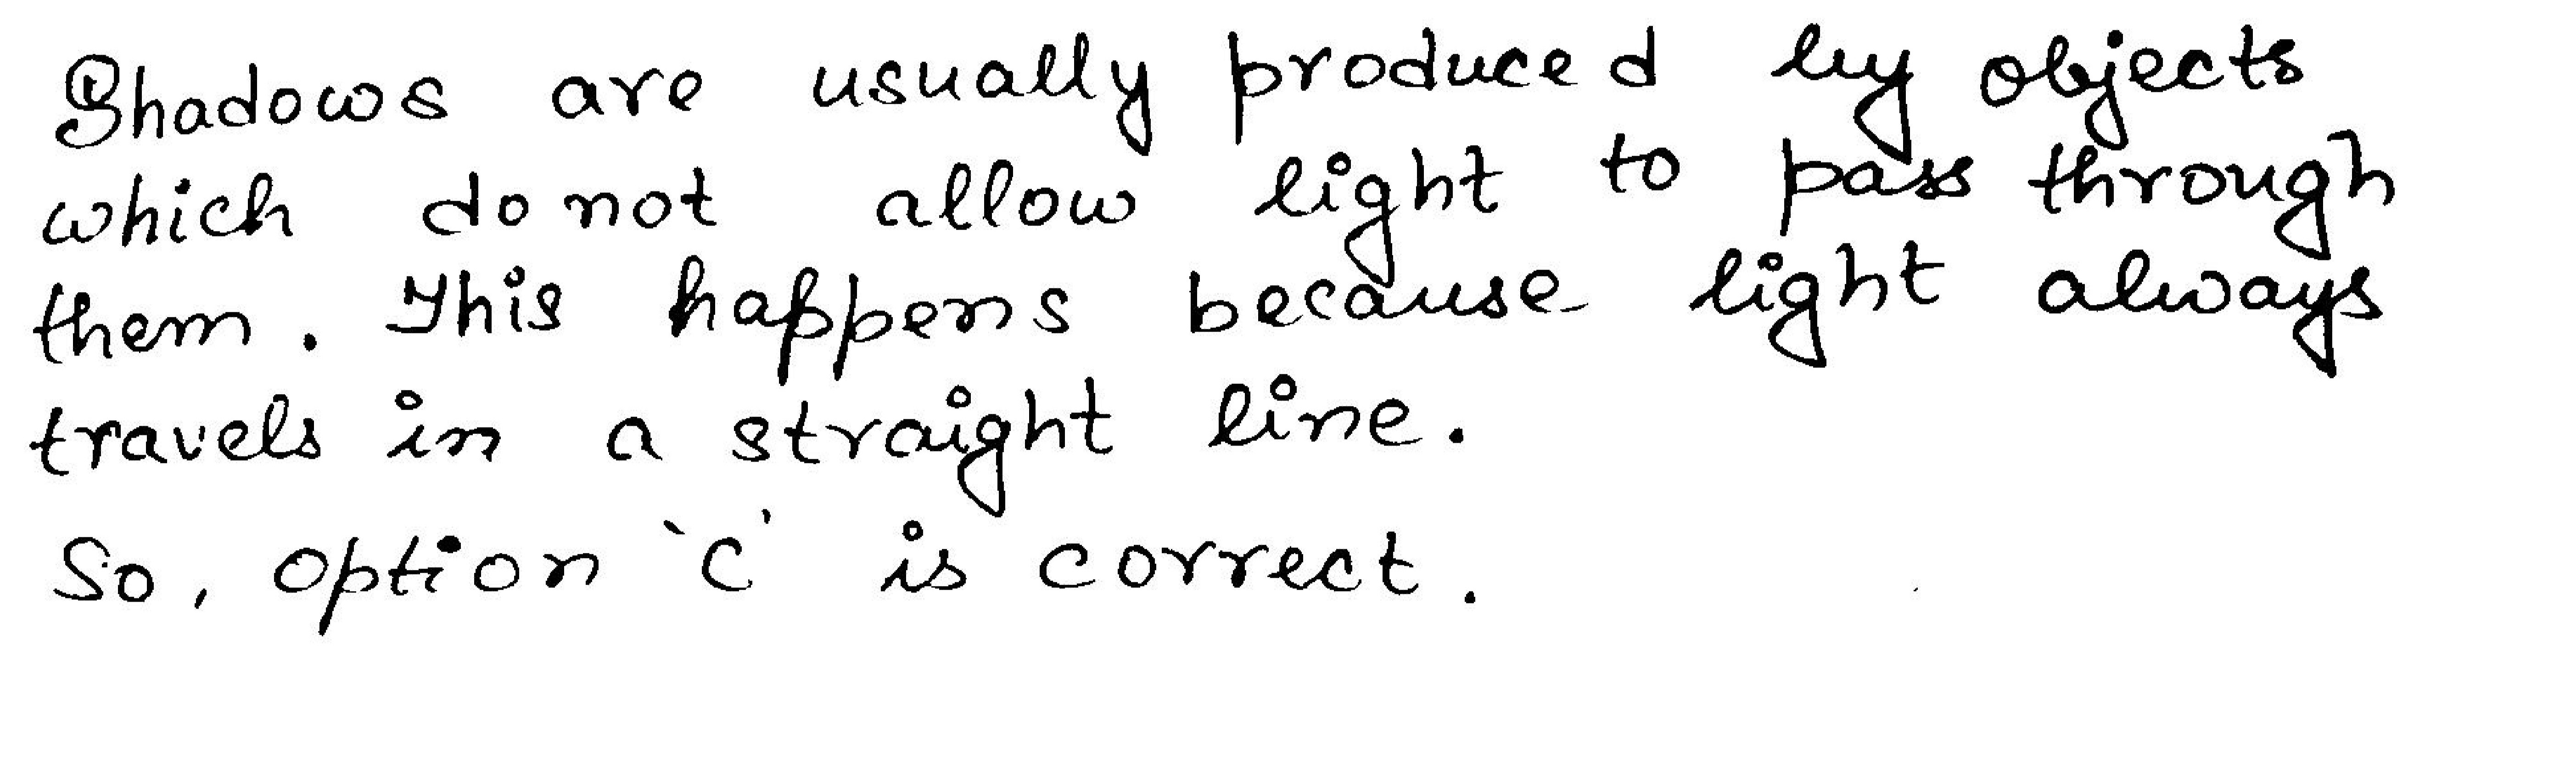 Shadows are usually produced by objects
which do not allow light to pass through
them. This happens because light always
travels in a straight line.
So, option 'C' is correct.